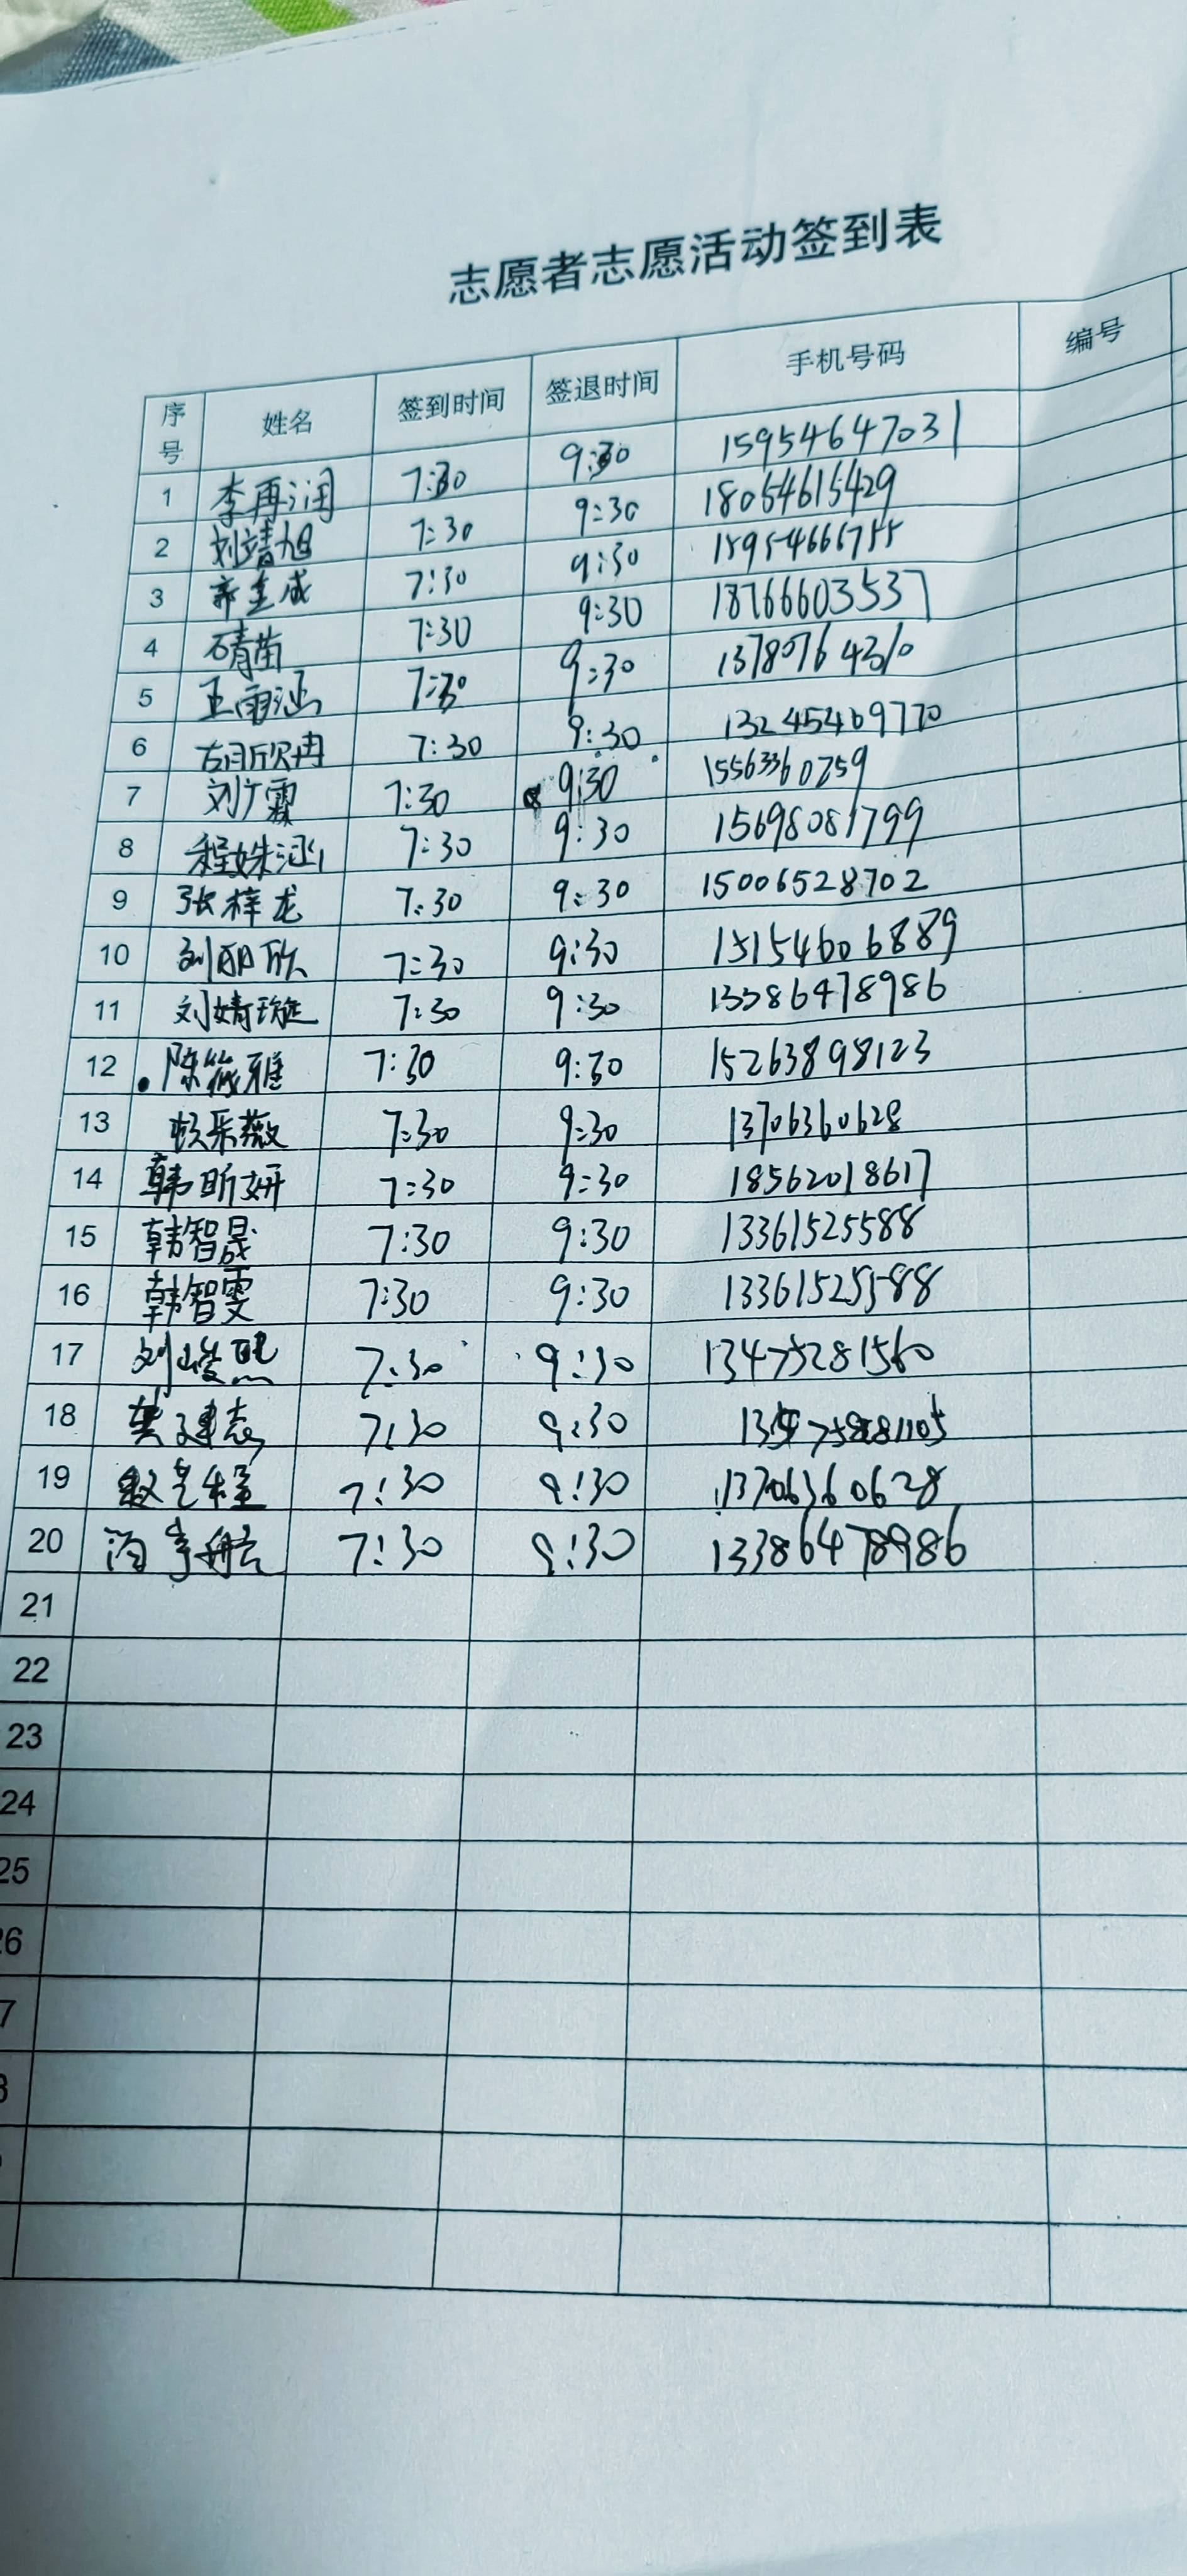 志愿者志愿活动签到表
序号 姓名 签到时间 签退时间 手机号码 编号
1 李再润 7:30 9:30 15954647031
2 刘靖旭 7:30 9:30 18054615429
3 7:30 9:30
4 7:30 9:30 18766603537
5 王雨涵 7:30 9:30 13780764310
6 胡欣冉 7:30 9:30 13245469770
7 刘广霖 7:30 9:30 15563360259
8 程姝涵 7:30 9:30 15698081799
9 张梓龙 7:30 9:30 15006528702
10 7:30 9:30 15154606889
11 刘婧璇 7:30 9:30 13386478986
12 陈筱雅 7:30 9:30 15263898123
13 7:30 9:30 13706360628
14 韩昕妍 7:30 9:30 18562018617
15 韩智晟 7:30 9:30 13361525588
16 韩智雯 7:30 9:30 13361525588
17 刘峻熙 7:30 9:30 13475281560
18 7:30 9:30
19 7:30 9:30 13706360628
20 7:30 9:30 13386478986
21
22
23
24
25
26
7